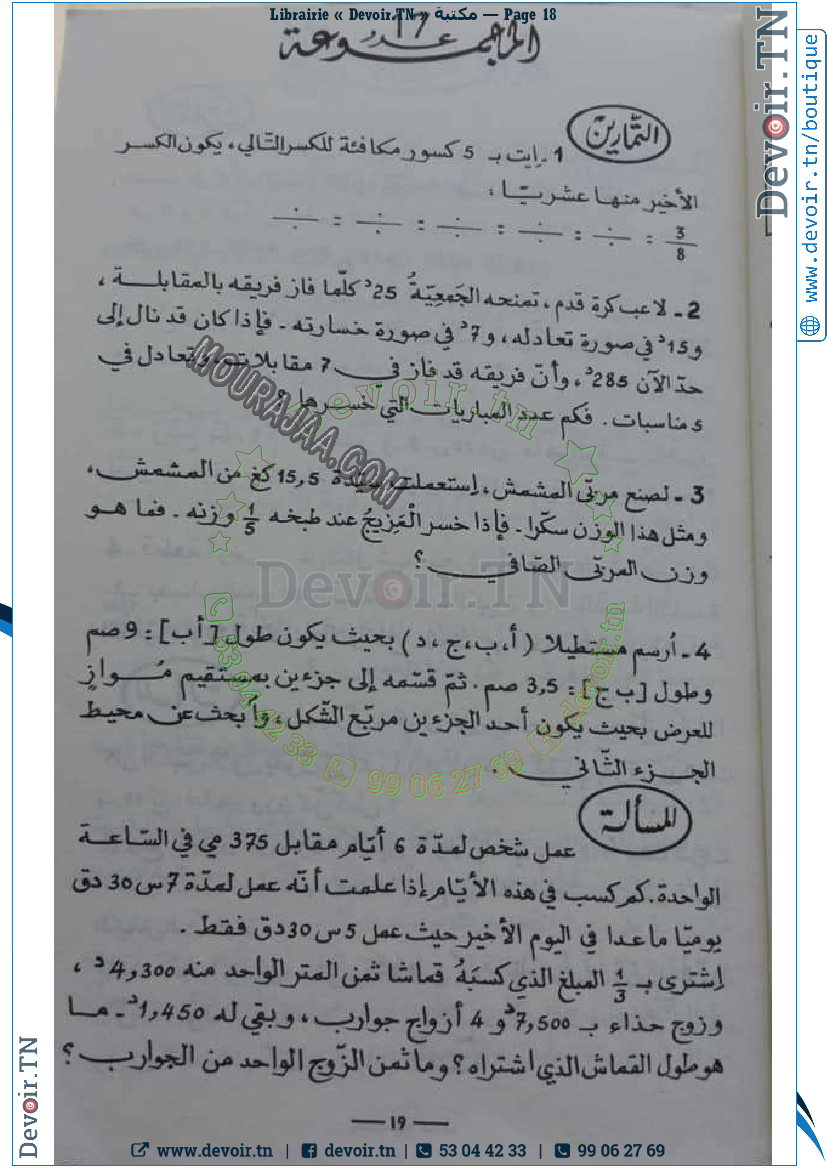 Librairie « Devoir.TN » مكتبة — Page 18
المجموعة عدد 17
التمارين
1 ـ إيت بـ 5 كسور مكافئة للكسر التّالي، يكون الكسر
الأخير منها عشريّا.
3/8 = — = — = — = — = —
2 ـ لاعب كرة قدم، تمنحه الجَمعِيَّةُ 25د كلّما فاز فريقه بالمقابلة،
و15د في صورة تعادله، و7د في صورة خسارته. فإذا كان قد نال إلى
حدّ الآن 285د، وأنّ فريقه قد فاز في 7 مقابلات وتعادل في
5 مناسبات. فكم عدد المباريات التي خسرها؟
3 ـ لصنع مربّى المشمش، إستعملت سيّدة 15,5 كغ من المشمش،
ومثل هذا الوزن سكّرا. فإذا خسر المَزِيجُ عند طبخه 1/5 وزنه. فما هو
وزن المربّى الصّافي؟
4 ـ أرسم مستطيلا (أ، ب، ج، د) بحيث يكون طول [أب]: 9 صم
وطول [ب ج]: 3,5 صم. ثمّ قسّمه إلى جزءين بمستقيم مُوازٍ
للعرض بحيث يكون أحد الجزءين مربّع الشّكل، وأبحث عن محيط
الجزء الثّاني.
المسألة
عمل شخص لمدّة 6 أيّام مقابل 375 مي في السّاعة
الواحدة. كم كسب في هذه الأيّام إذا علمت أنّه عمل لمدّة 7 س 30 دق
يوميّا ماعدا في اليوم الأخير حيث عمل 5 س 30 دق فقط.
إشترى بـ 1/3 المبلغ الذي كسبَهُ قماشا ثمن المتر الواحد منه 4,300د،
وزوج حذاء بـ 7,500د و 4 أزواج جوارب، وبقي له 1,450د. ما
هو طول القماش الذي اشتراه؟ وما ثمن الزّوج الواحد من الجوارب؟
— 19 —
MOURAJAA.COM
devoir.tn
Devoir.TN
53 04 42 33
99 06 27 69
devoir.tn
Devoir.TN
www.devoir.tn/boutique
Devoir.TN
www.devoir.tn | devoir.tn | 53 04 42 33 | 99 06 27 69